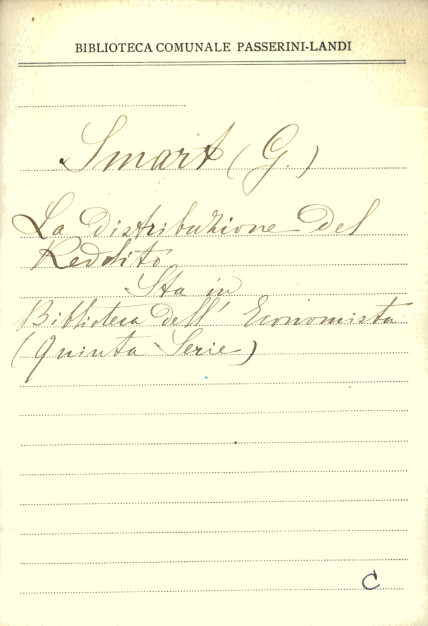 BIBLIOTECA COMUNALE PASSERINI-LANDI
Smart (G.)
La distribuzione del
Reddito
Sta in
Biblioteca dell' Economista
(Quinta Serie)
C